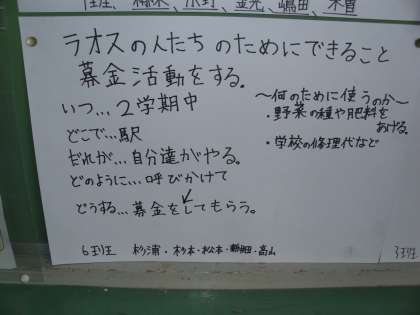 ラオスの人たちのためにできること
募金活動をする.
いつ…2学期中
どこで…駅
だれが…自分達がやる。
どのように…呼びかけて
どうする…募金をしてもらう。
〜何のために使うのか〜
・野菜の種や肥料を
あげる。
・学校の修理代など
6班 杉浦・杉本・松本・鶴田・高山
3班